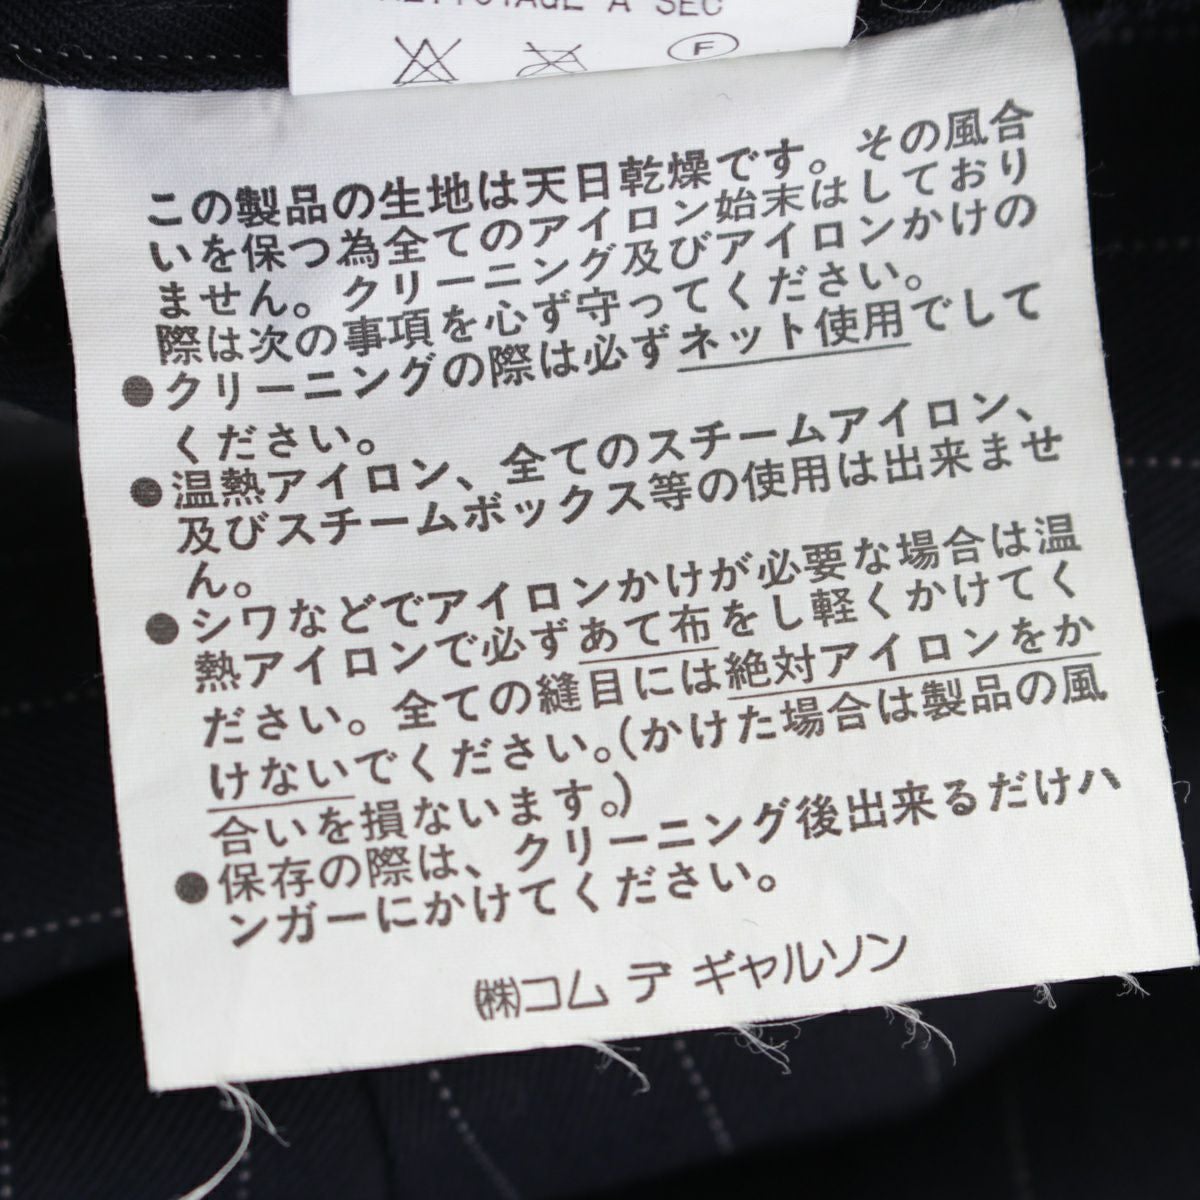 NETTOYAGE A SEC
F
この製品の生地は天日乾燥です。その風合
いを保つ為全てのアイロン始末はしており
ません。クリーニング及びアイロンかけの
際は次の事項を必ず守ってください。
●クリーニングの際は必ずネット使用でして
ください。
●温熱アイロン、全てのスチームアイロン、
及びスチームボックス等の使用は出来ませ
ん。
●シワなどでアイロンかけが必要な場合は温
熱アイロンで必ずあて布をし軽くかけてく
ださい。全ての縫目には絶対アイロンをか
けないでください。(かけた場合は製品の風
合いを損ないます。)
●保存の際は、クリーニング後出来るだけハ
ンガーにかけてください。
㈱コム デ ギャルソン